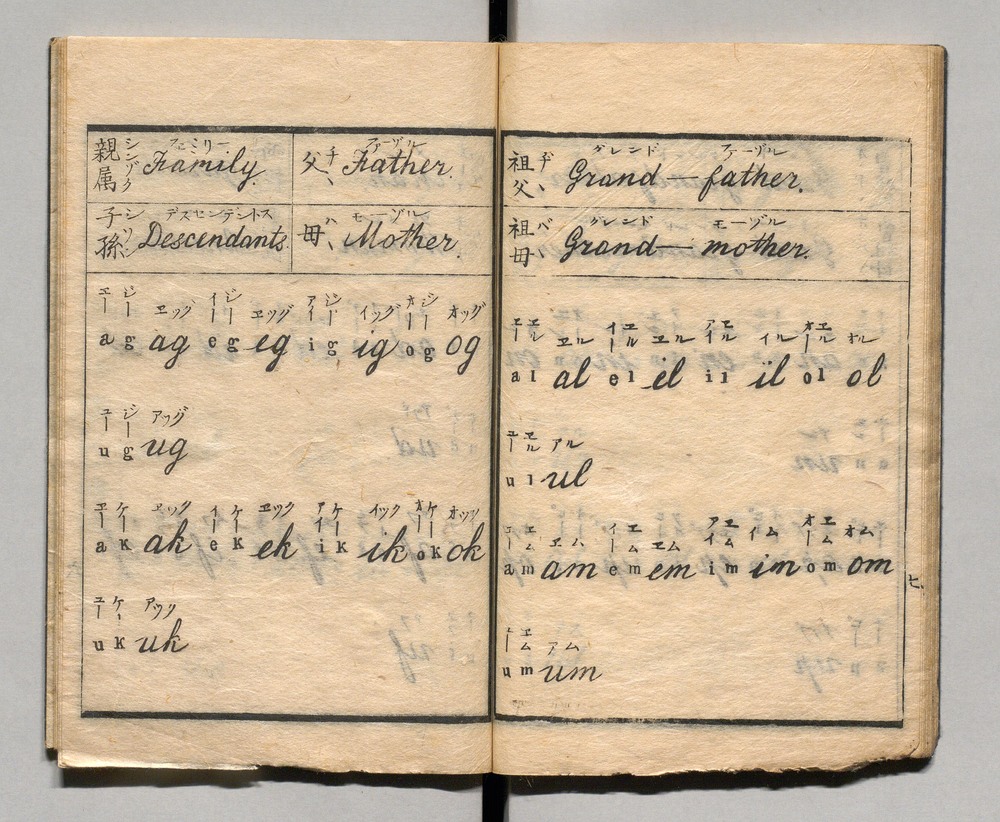 親属 シンゾク フェミリー Family.
父 チヽ ファーヅル Father.
子孫 シソン デスセンデントス Descendants.
母 ハヽ モーヅル Mother.
エー ジー エッグ イー ジー エッグ アイ ジー イッグ オー ジー オッグ
a g ag e g eg i g ig o g og
ユー ジー アッグ
u g ug
エー ケー エック イー ケー エック アイ ケー イック オー ケー オック
a k ak e k ek i k ik o k ok
ユー ケー アック
u k uk
祖父 ヂヽ グレンド ファーヅル Grand—father.
祖母 バヽ グレンド モーヅル Grand—mother.
エー エル エル イー エル エル アイ エル イル オー エル オル
a l al e l el i l il o l ol
ユー エル アル
u l ul
エー エム エム イー エム エム アイ エム イム オー エム オム
a m am e m em i m im o m om
ユー エム アム
u m um
七